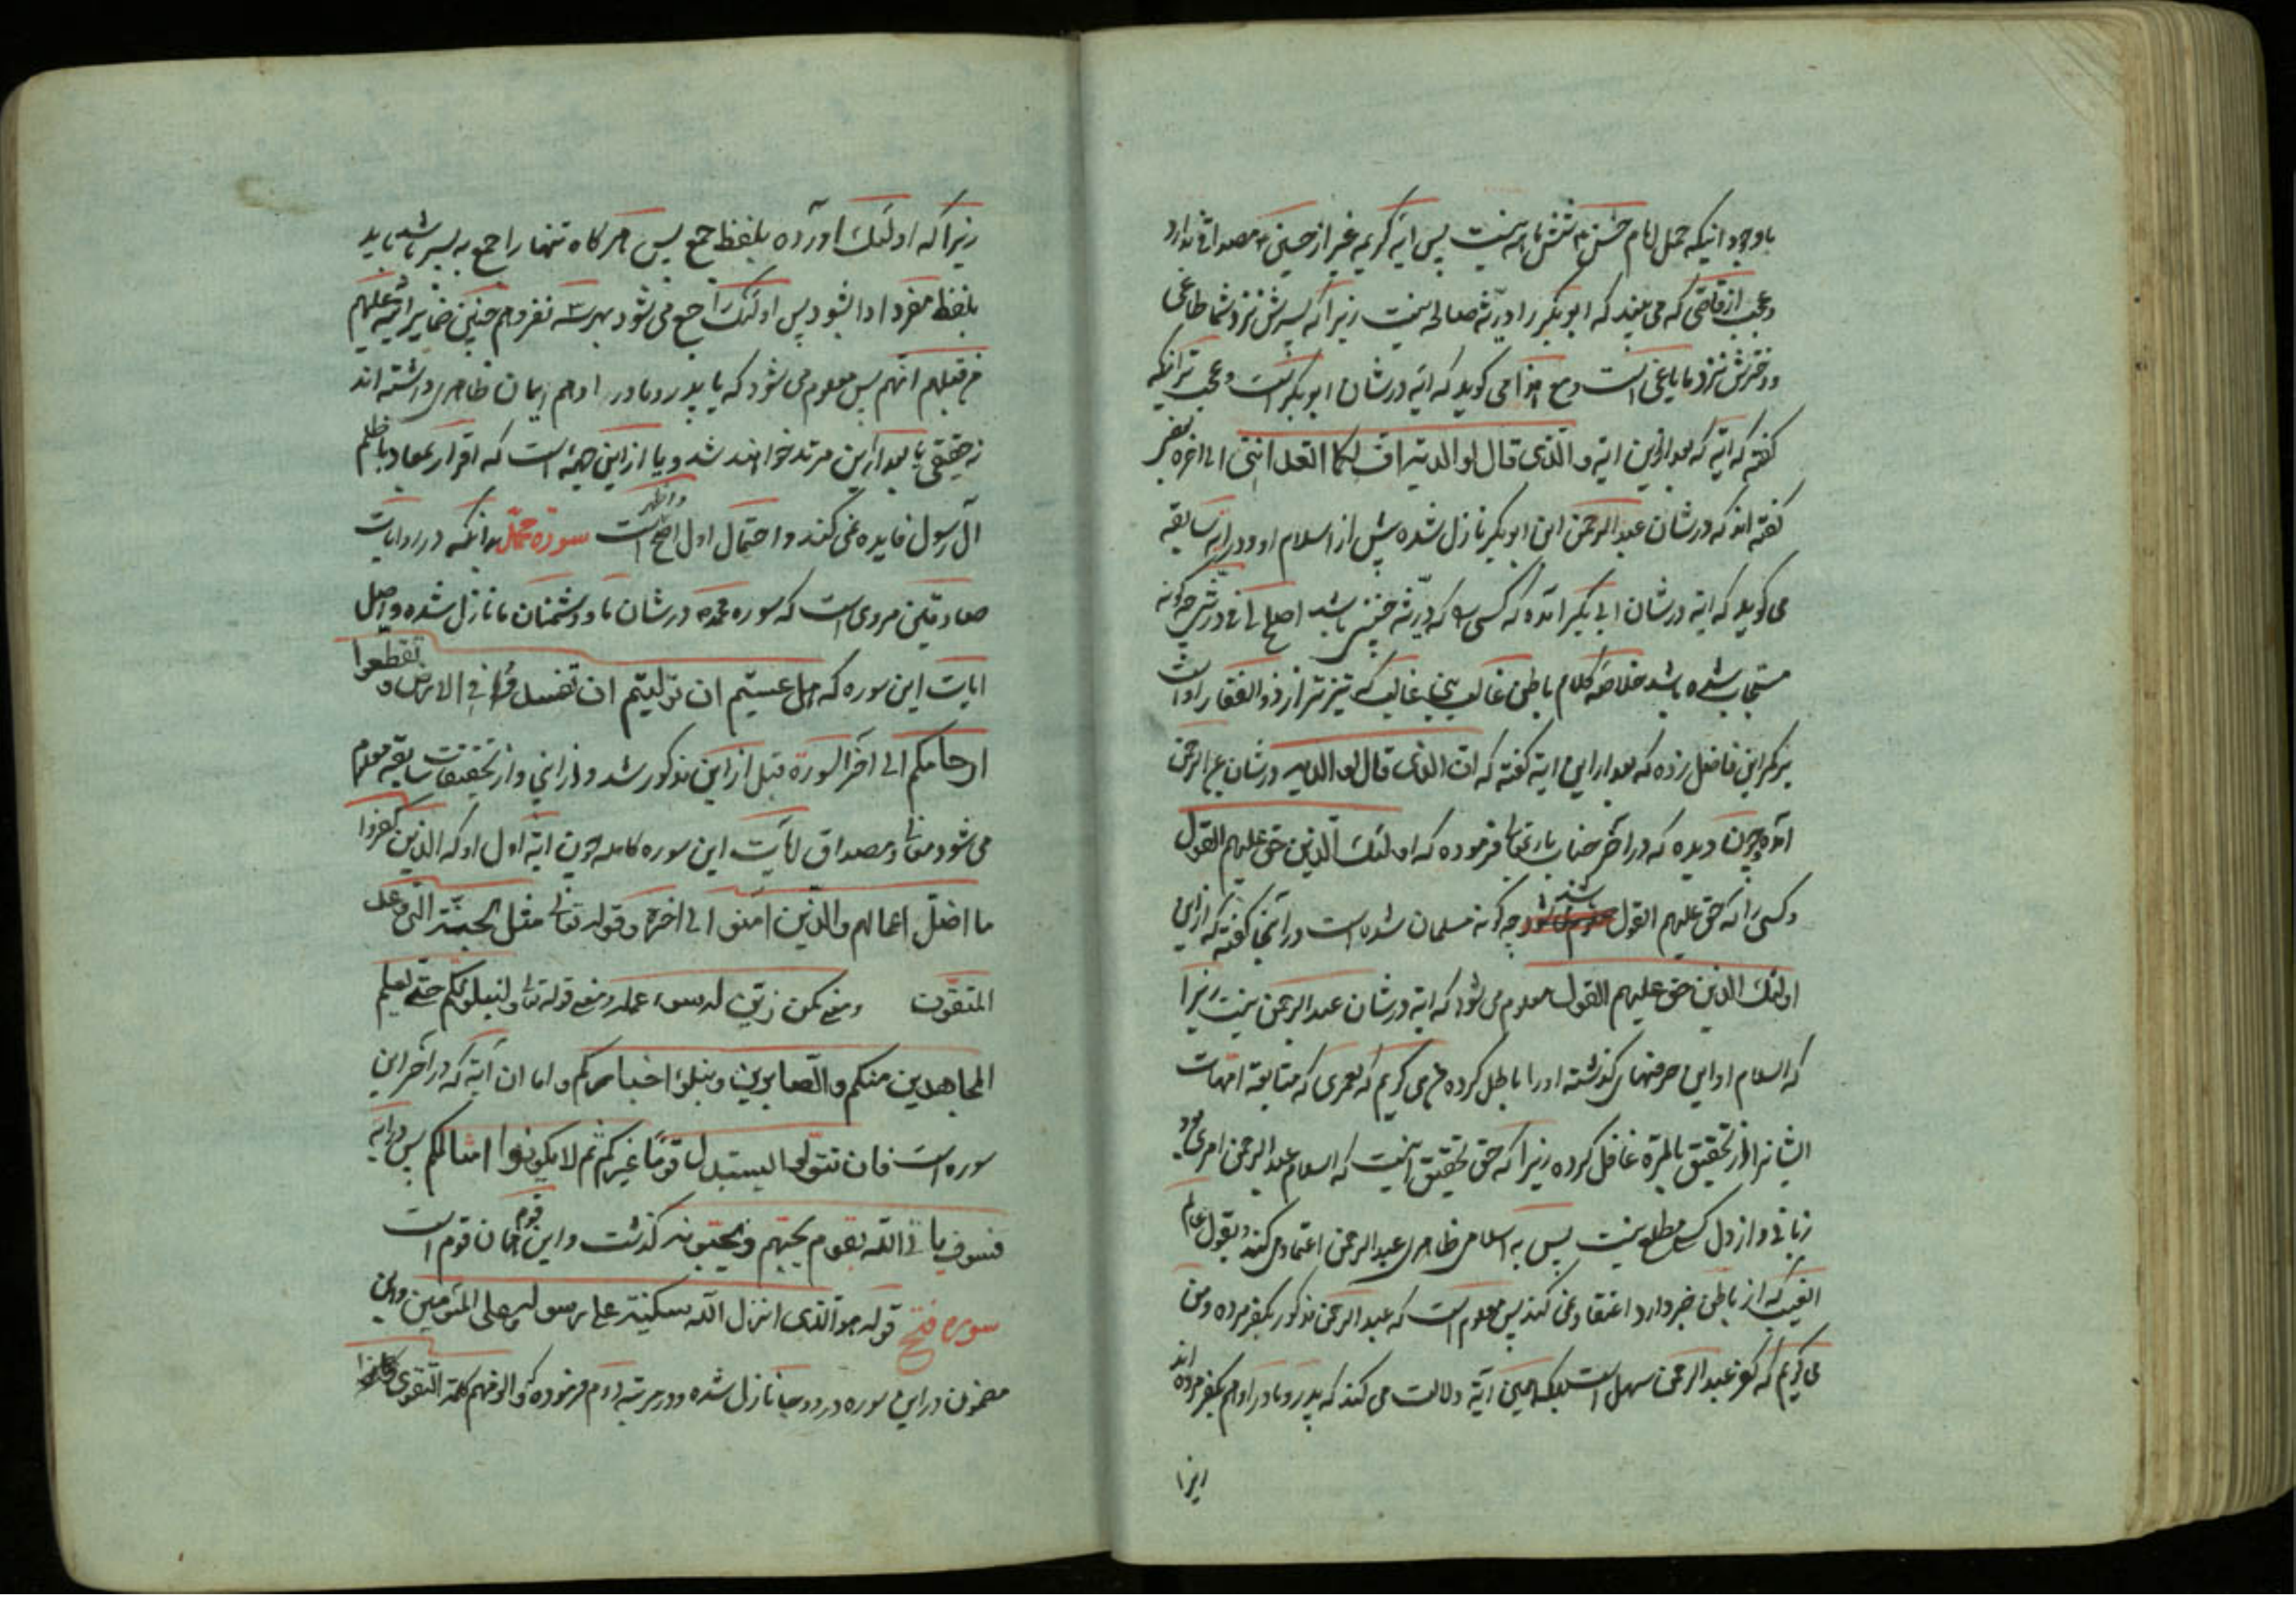 باوجود انیکه حمل امام حسن ۳ شش ماهه نیست پس ایه کریمه غیر از حسین ۳ مصداقی ندارد
وعجب از قاضی که می بیند که ابوبکر را ذریّه صالحه نیست زیرا که پسرش نزد شما طاغی
ودخترش نزد ما یاغی است ومع هذا می کوید که ایه درشان ابوبکر است وعجب تر انیکه
کفته که ایه که بعد از این ایه والّذی قال لوالدیه افّ لکما اتعداننی الی اخره
کفته اند که درشان عبد الرحمن ابن ابوبکر نازل شده پیش از اسلام او ودر ایه سابقه
می کوید که ایه درشان ابی بکر آمده که کسی که ذریّه چنین باشد اصلح لی فی ذرّیتی چکونه
مستجاب شده باشد خلاصه کلام باطن غالب بن غالب که تیزتر از ذوالفقار است
بر کمر این فاضل زده که بعد از این ایه کفته که ان الذی قال لوالدیه درشان عبد الرحمن
آمده چون دیده که در آخر جناب باری تعالی فرموده که اولئک الّذین حق علیهم القول
وکسی را که حق علیهم القول شد چه کونه مسلمان شده است در آنجا کفته که از این
اولئک الذین حق علیهم القول معلوم می شود که ایه درشان عبد الرحمن نیست زیرا
که اسلام او این حرفهای کذشته اورا باطل کرده می کویم که لعمری که متابعة امهات
ایشانرا از تحقیق بالمرّه غافل کرده زیرا که حق تحقیق آنست که اسلام عبد الرحمن امری بود
زبانی واز دل کسی مطلع نیست پس به اسلام ظاهری عبد الرحمن اعتماد می کنند وبقول عالم
الغیب که از باطن خبر دارد اعتقاد نمی کنند پس معلوم است که عبد الرحمن مذکور بکفر مرده ومن
می کویم که کفر عبد الرحمن سهل است بلکه همین آیة دلالت می کند که پدر ومادر او هم بکفر مرده اند
زیرا
زیرا که اولئک آورده بلفظ جمع پس هر کاه تنها راجع به پسر باشد باید
بلفظ مفرد ادا بشود پس اولئک راجع می شود بهر سه نفر وهم چنین ضمایر علیهم
من قبلهم انهم پس معلوم می شود که یا پدر ومادر او هم ایمان ظاهری داشته اند
نه حقیقی یا بعد از این مرتد خواهند شد ویا از این جهة است که اقرار بمعاد با ظلم
آل رسول فایده نمی کند واحتمال اول اصح است واظهر سورة محمّد بدانکه در روایات
صادقین مروی است که سوره محمد درشان ما ودشمنان ما نازل شده واصل
ایات این سوره که هل عسیتم ان تولّیتم ان تفسدوا فی الارض وتقطعوا
ارحامکم الی آخر السورة قبل از این مذکور شد واز این واز تحقیقات سابقه معلوم
می شود معانی ومصداق ایات این سوره کامله چون ایه اول او که الذین کفروا
ما اضلّ اعمالهم والّذین آمنوا الی اخره وقوله تعالی مثل الجنّة الّتی وعد
المتقون ومعنی کمن زیّن له سوء عمله ومعنی قوله تعالی ولنبلونّکم حتّی نعلم
المجاهدین منکم والصّابرین ونبلوا اخبارکم واما ان آیة که در آخر این
سوره است فان تتولّوا یستبدل قومًا غیرکم ثم لا یکونوا امثالکم پس در ایه
فسوف یاتی اللّه بقوم یحبّهم ویحبّونه کذشت واین قوم همان قوم است
سوره فتح قوله هو الّذی انزل اللّه سکینته علی رسوله وعلی المؤمنین واین
مضمون در این سوره در دو جا نازل شده ودر مرتبه دوم فرموده که والزمهم کلمة التقوی وکانوا